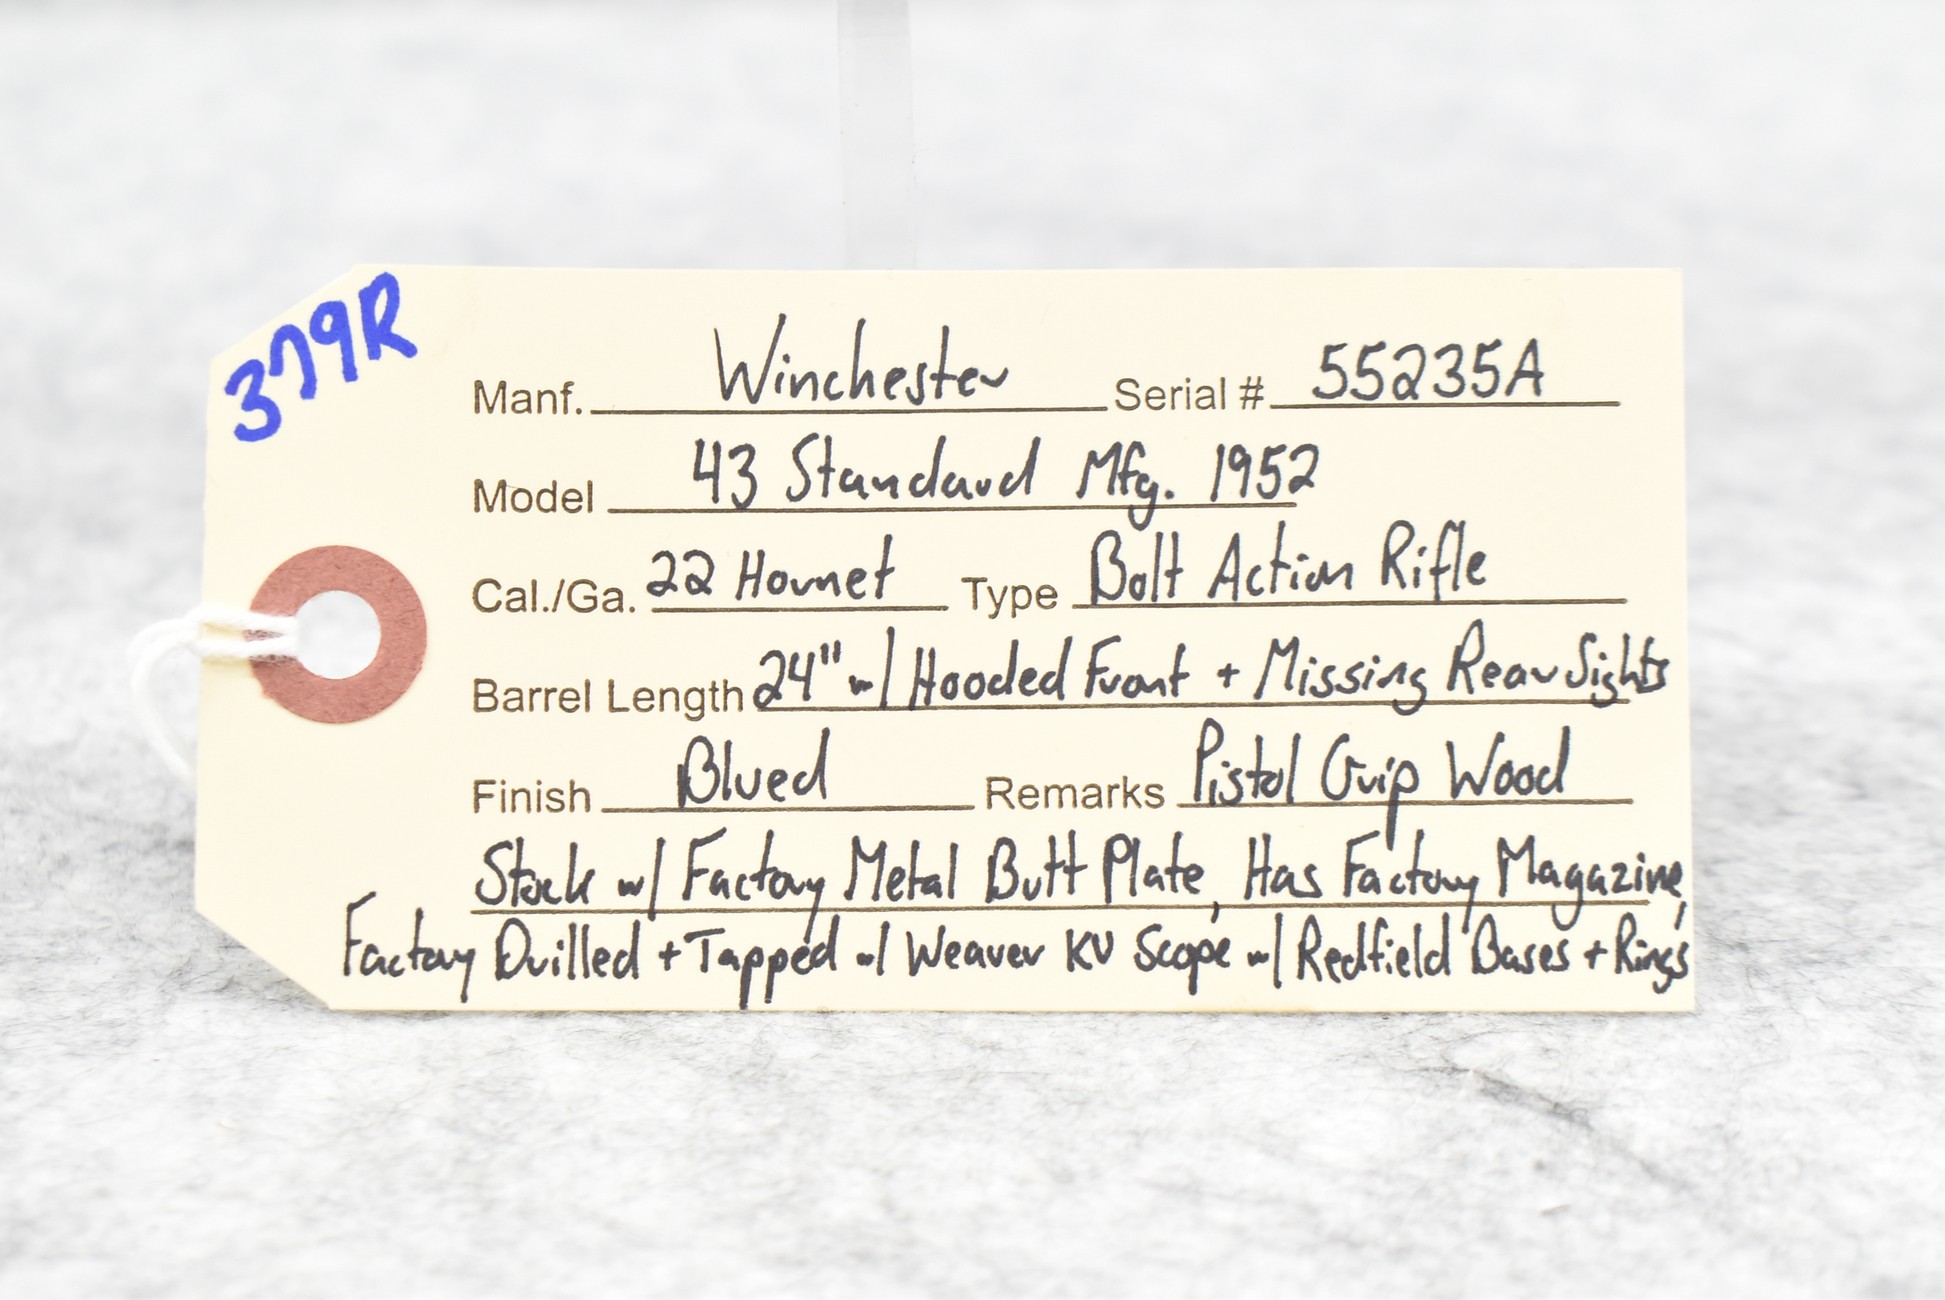 379R
Manf. Winchester Serial # 55235A
Model 43 Standard Mfg. 1952
Cal./Ga. 22 Hornet Type Bolt Action Rifle
Barrel Length 24" w/ Hooded Front + Missing Rear Sights
Finish Blued Remarks Pistol Grip Wood
Stock w/ Factory Metal Butt Plate, Has Factory Magazine,
Factory Drilled + Tapped w/ Weaver KV Scope w/ Redfield Bases + Rings